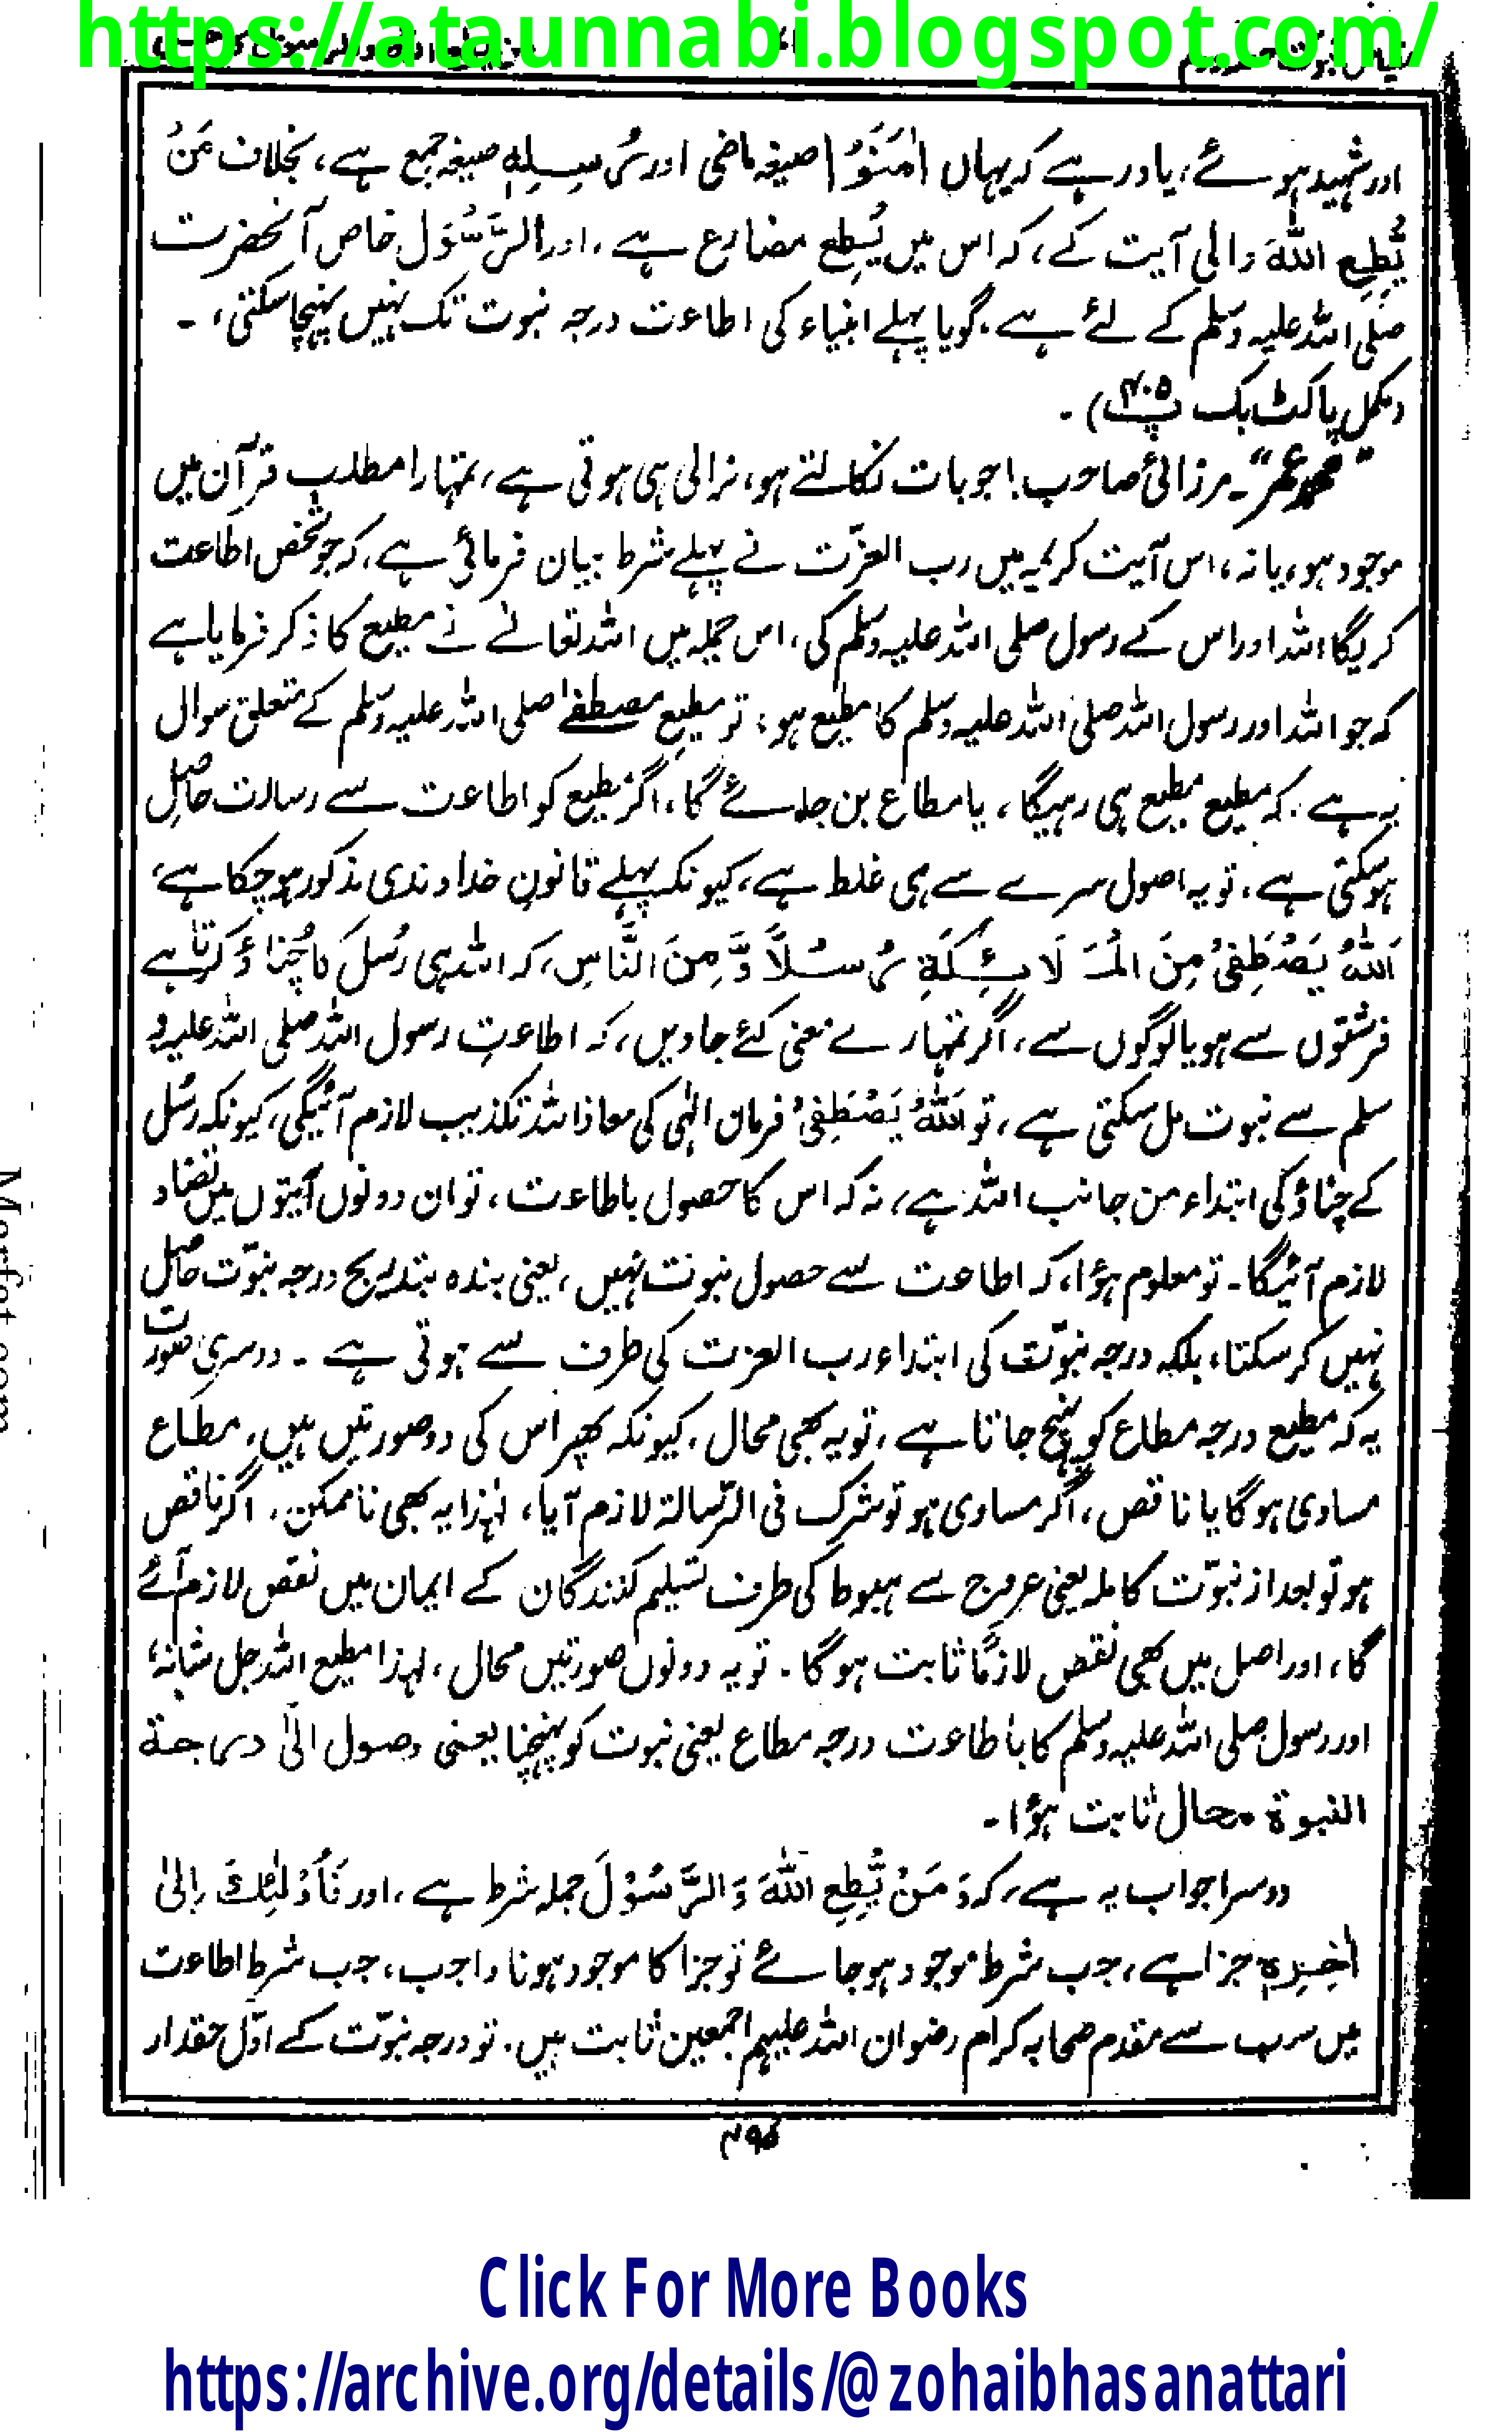 https://ataunnabi.blogspot.com/
اور شہید ہوئے، یاد رہے کہ یہاں اٰمَنُوْا صیغہ ماضی اور رُسُلِہٖ صیغہ جمع ہے، بخلاف مَنْ
یُّطِعِ اللّٰہَ والی آیت کے، کہ اس میں یُطِعِ مضارع ہے، اور الرَّسُوْلَ خاص آنحضرت
صلی اللہ علیہ وسلم کے لئے ہے. گویا پہلے انبیاء کی اطاعت درجہ نبوت تک نہیں پہنچا سکتی، ۔
(مکمل پاکٹ بک ص ۴۰۵) ۔
"محمد عمر"۔ مرزائی صاحب! جو بات نکالتے ہو، نرالی ہی ہوتی ہے، تمہارا مطلب قرآن میں
موجود ہو، یا نہ، اس آیت کریمہ میں رب العزّت نے پہلے شرط بیان فرمائی ہے، کہ جو شخص اطاعت
کریگا اللہ اور اس کے رسول صلی اللہ علیہ وسلم کی، اس جملہ میں اللہ تعالےٰ نے مطیع کا ذکر فرمایا ہے
کہ جو اللہ اور رسول اللہ صلی اللہ علیہ وسلم کا مطیع ہو، تو مطیعِ مصطفےٰ صلی اللہ علیہ وسلم کے متعلق سوال
یہ ہے. کہ مطیع مطیع ہی رہیگا، یا مطاع بن جائے گا، اگر مطیع کو اطاعت سے رسالت حاصل
ہوسکتی ہے. تو یہ اصول سرے سے ہی غلط ہے، کیونکہ پہلے قانونِ خداوندی مذکور ہوچکا ہے،
اَللّٰہُ یَصْطَفِیْ مِنَ الْمَلَائِکَةِ رُسُلًا وَّ مِنَ النَّاسِ، کہ اللہ ہی رُسُل کا چُناؤ کرتا ہے
فرشتوں سے ہو یا لوگوں سے، اگر تمہارے معنی کئے جاویں، کہ اطاعتِ رسول اللہ صلی اللہ علیہ و
سلم سے نبوت مل سکتی ہے، تو اَللّٰہُ یَصْطَفِیْ فرمان الٰہی کی معاذ اللہ تکذیب لازم آئیگی، کیونکہ رُسُل
کے چناؤ کی ابتداء من جانب اللہ ہے، نہ کہ اس کا حصول باطاعت، تو ان دونوں آیتوں میں تضاد
لازم آئیگا۔ تو معلوم ہؤا، کہ اطاعت سے حصول نبوت نہیں، یعنی بندہ بتدریج درجہ نبوّت حاصل
نہیں کرسکتا، بلکہ درجہ نبوّت کی ابتداء رب العزت کی طرف سے ہوتی ہے ۔ دوسری صورت
یہ کہ مطیع درجہ مطاع کو پہنچ جاتا ہے، تو یہ بھی محال. کیونکہ پھر اُس کی دو صورتیں ہیں، مطاع
مساوی ہوگا یا ناقص، اگر مساوی ہو تو شرک فی الرّسالۃ لازم آیا، لہٰذا یہ بھی ناممکن. اگر ناقص
ہو تو بعد از نبوّت کاملہ یعنی عروج سے ہبوط کی طرف تسلیم کنندگان کے ایمان میں نقص لازم آئے
گا، اور اصل میں بھی نقص لازمًا ثابت ہوگا ۔ تو یہ دونوں صورتیں محال، لہذا مطیع اللہ جل شانہٗ
اور رسول صلی اللہ علیہ وسلم کا با طاعت درجہ مطاع یعنی نبوت کو پہنچنا یعنی وصول الیٰ درجة
النبوة محال ثابت ہؤا ۔
دوسرا جواب یہ ہے، کہ وَ مَنْ یُّطِعِ اللّٰہَ وَ الرَّسُوْلَ جملہ شرط ہے، اور فَاُوْلٰئِكَ اِلٰی
اٰخِرِہٖ جزا ہے، جب شرط موجود ہو جائے تو جزا کا موجود ہونا واجب، جب شرط اطاعت
میں سب سے مقدم صحابہ کرام رضوان اللہ علیہم اجمعین ثابت ہیں. تو درجہ نبوّت کے اوّل حقدار
Click For More Books
https://archive.org/details/@zohaibhasanattari